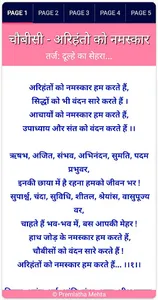 PAGE 1 PAGE 2 PAGE 3 PAGE 4 PAGE 5
चौबीसी - अरिहंतो को नमस्कार
तर्ज: दूल्हे का सेहरा...
अरिहंतों को नमस्कार हम करते हैं,
सिद्धों को भी वंदन सारे करते हैं ।
आचार्यों को नमस्कार हम करते हैं,
उपाध्याय और संत को वंदन करते हैं ।।
ऋषभ, अजित, संभव, अभिनंदन, सुमति, पदम
प्रभुवर,
इनकी छाया में है रहना हमको जीवन भर !
सुपार्श्व, चंदा, सुविधि, शीतल, श्रेयांस, वासुपूज्य
वर,
चाहते हैं भव-भव में, बस आपकी मेहर !
हाथ जोड़ के नमस्कार हम करते हैं,
चौबीसों को वंदन सारे करते हैं !
अरिहंतों को नमस्कार हम करते हैं... ।।१।।
© Premlatha Mehta